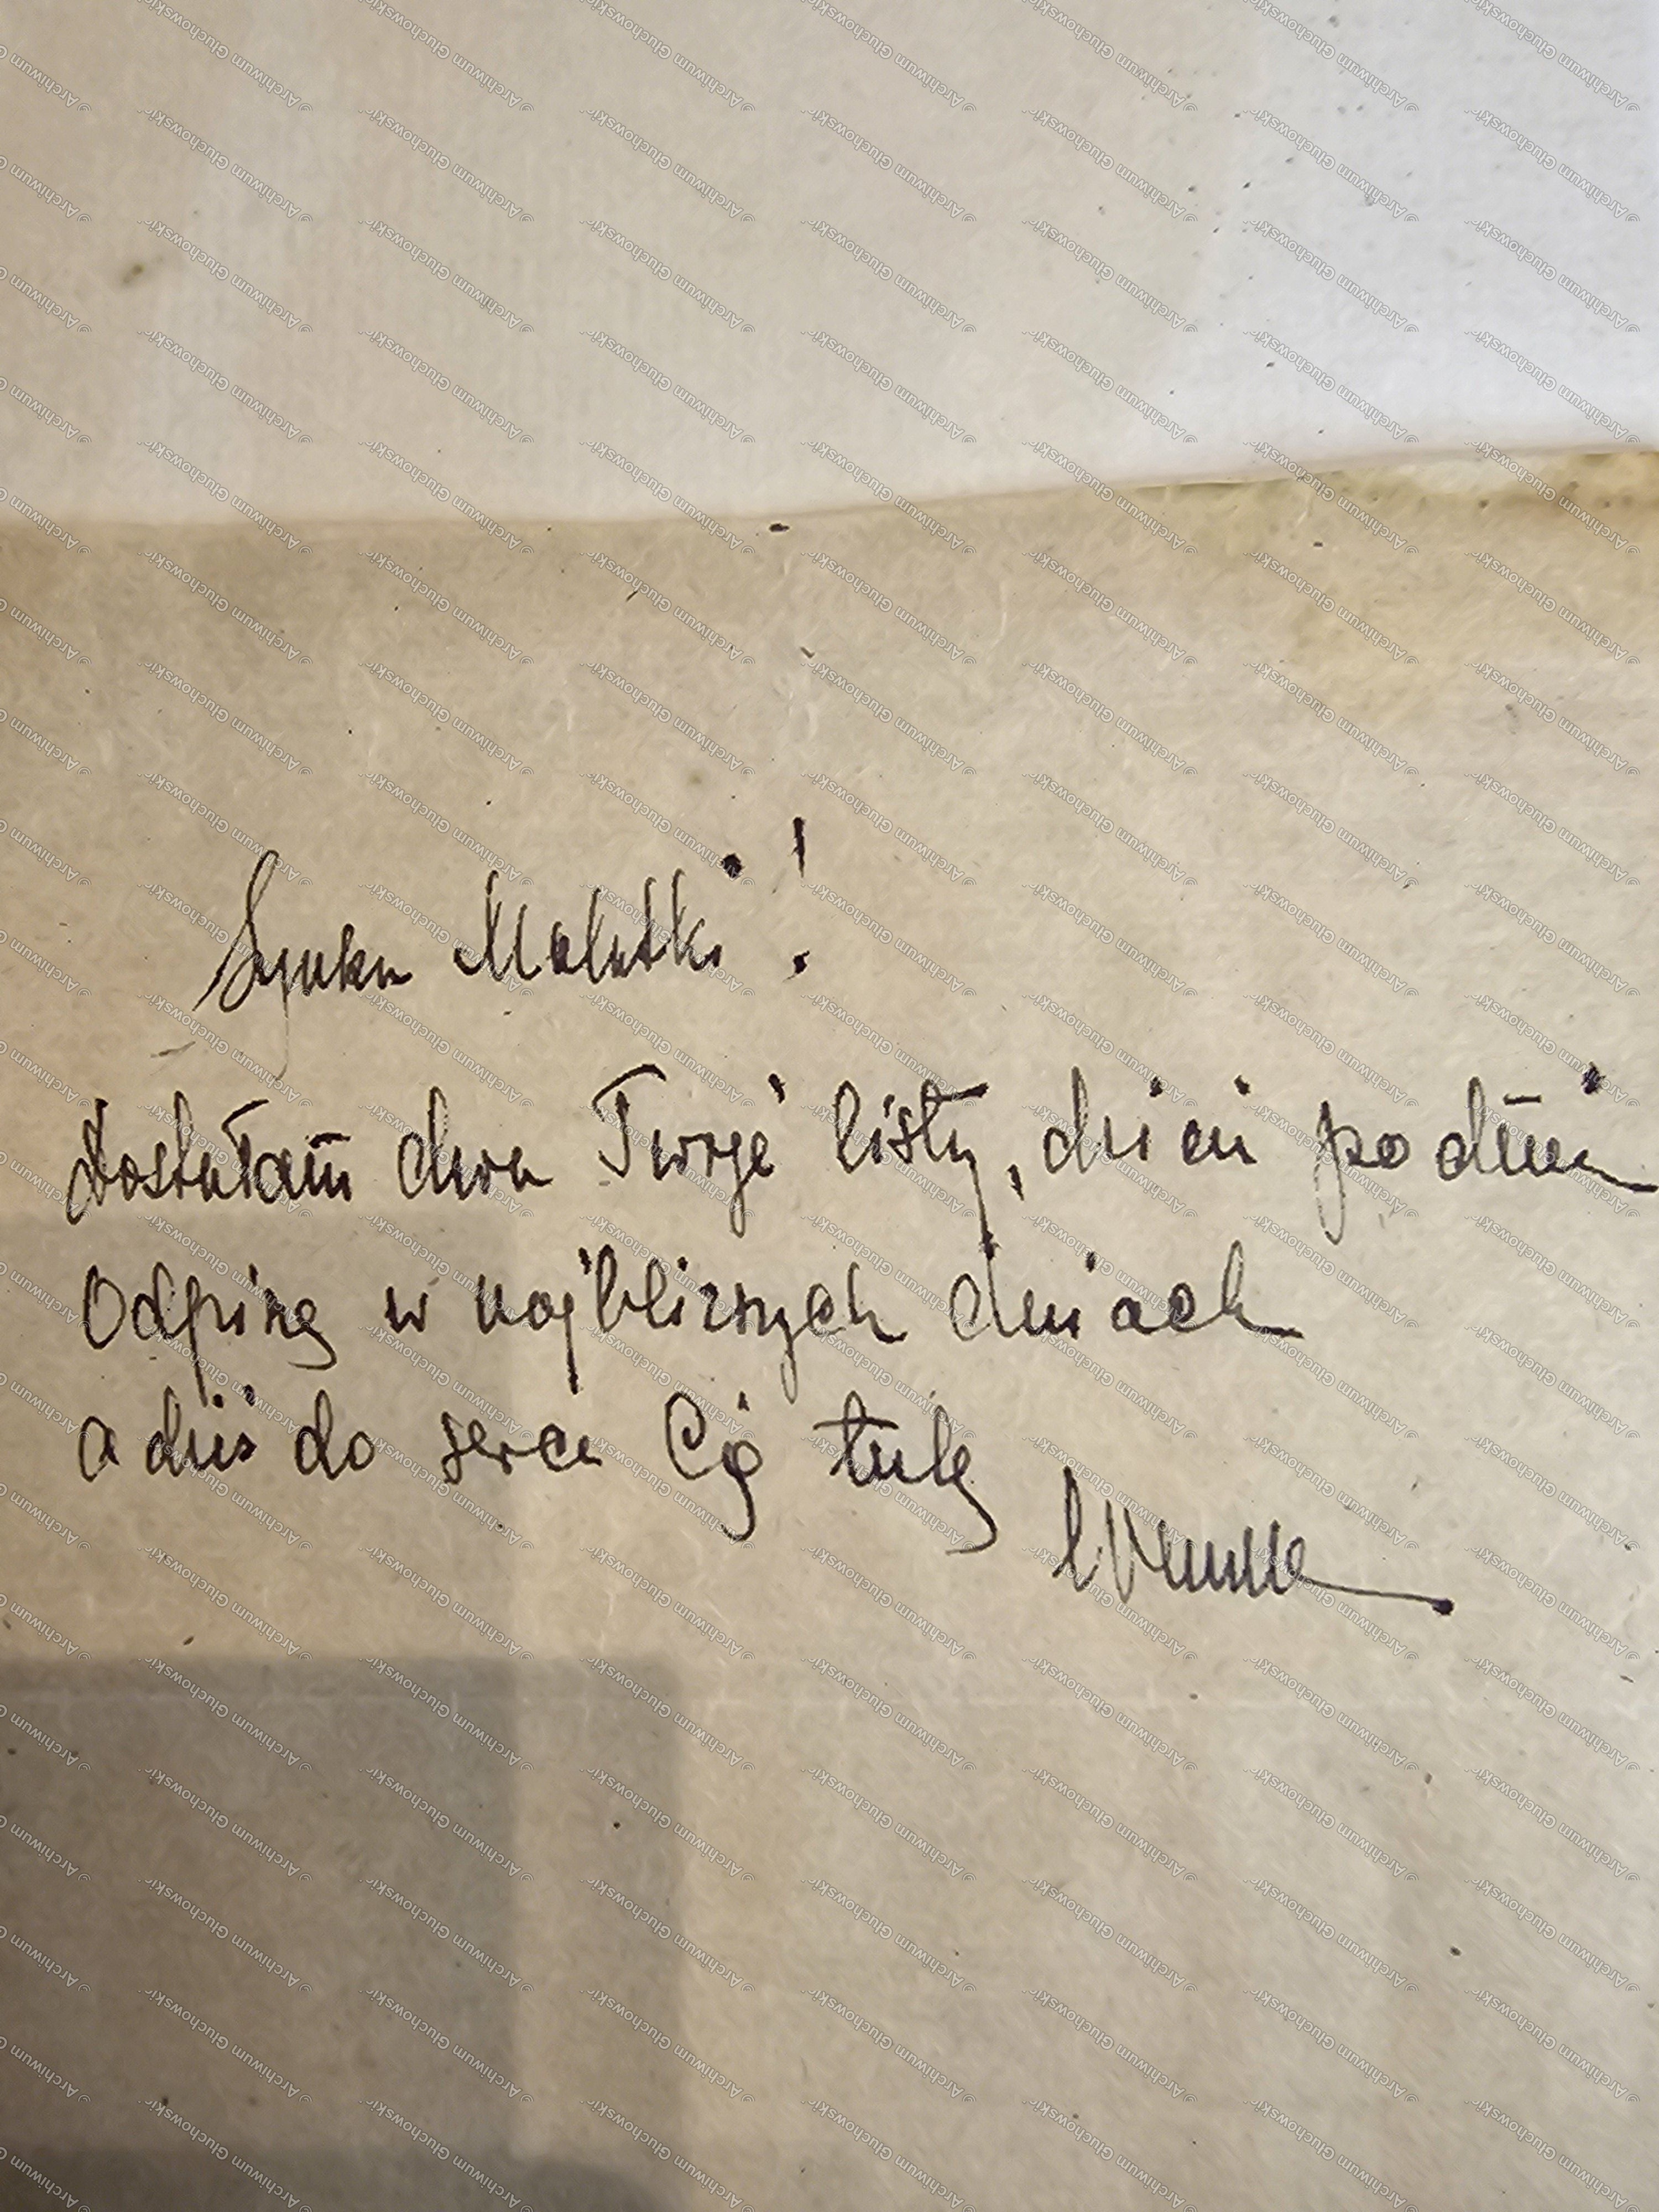 Synku Malutki!
dostałam dwa Twoje listy, dzień po dniu
Odpiszę w najbliższych dniach
a dziś do serca Cię tulę
Mamma
© Archiwum Gluchowski